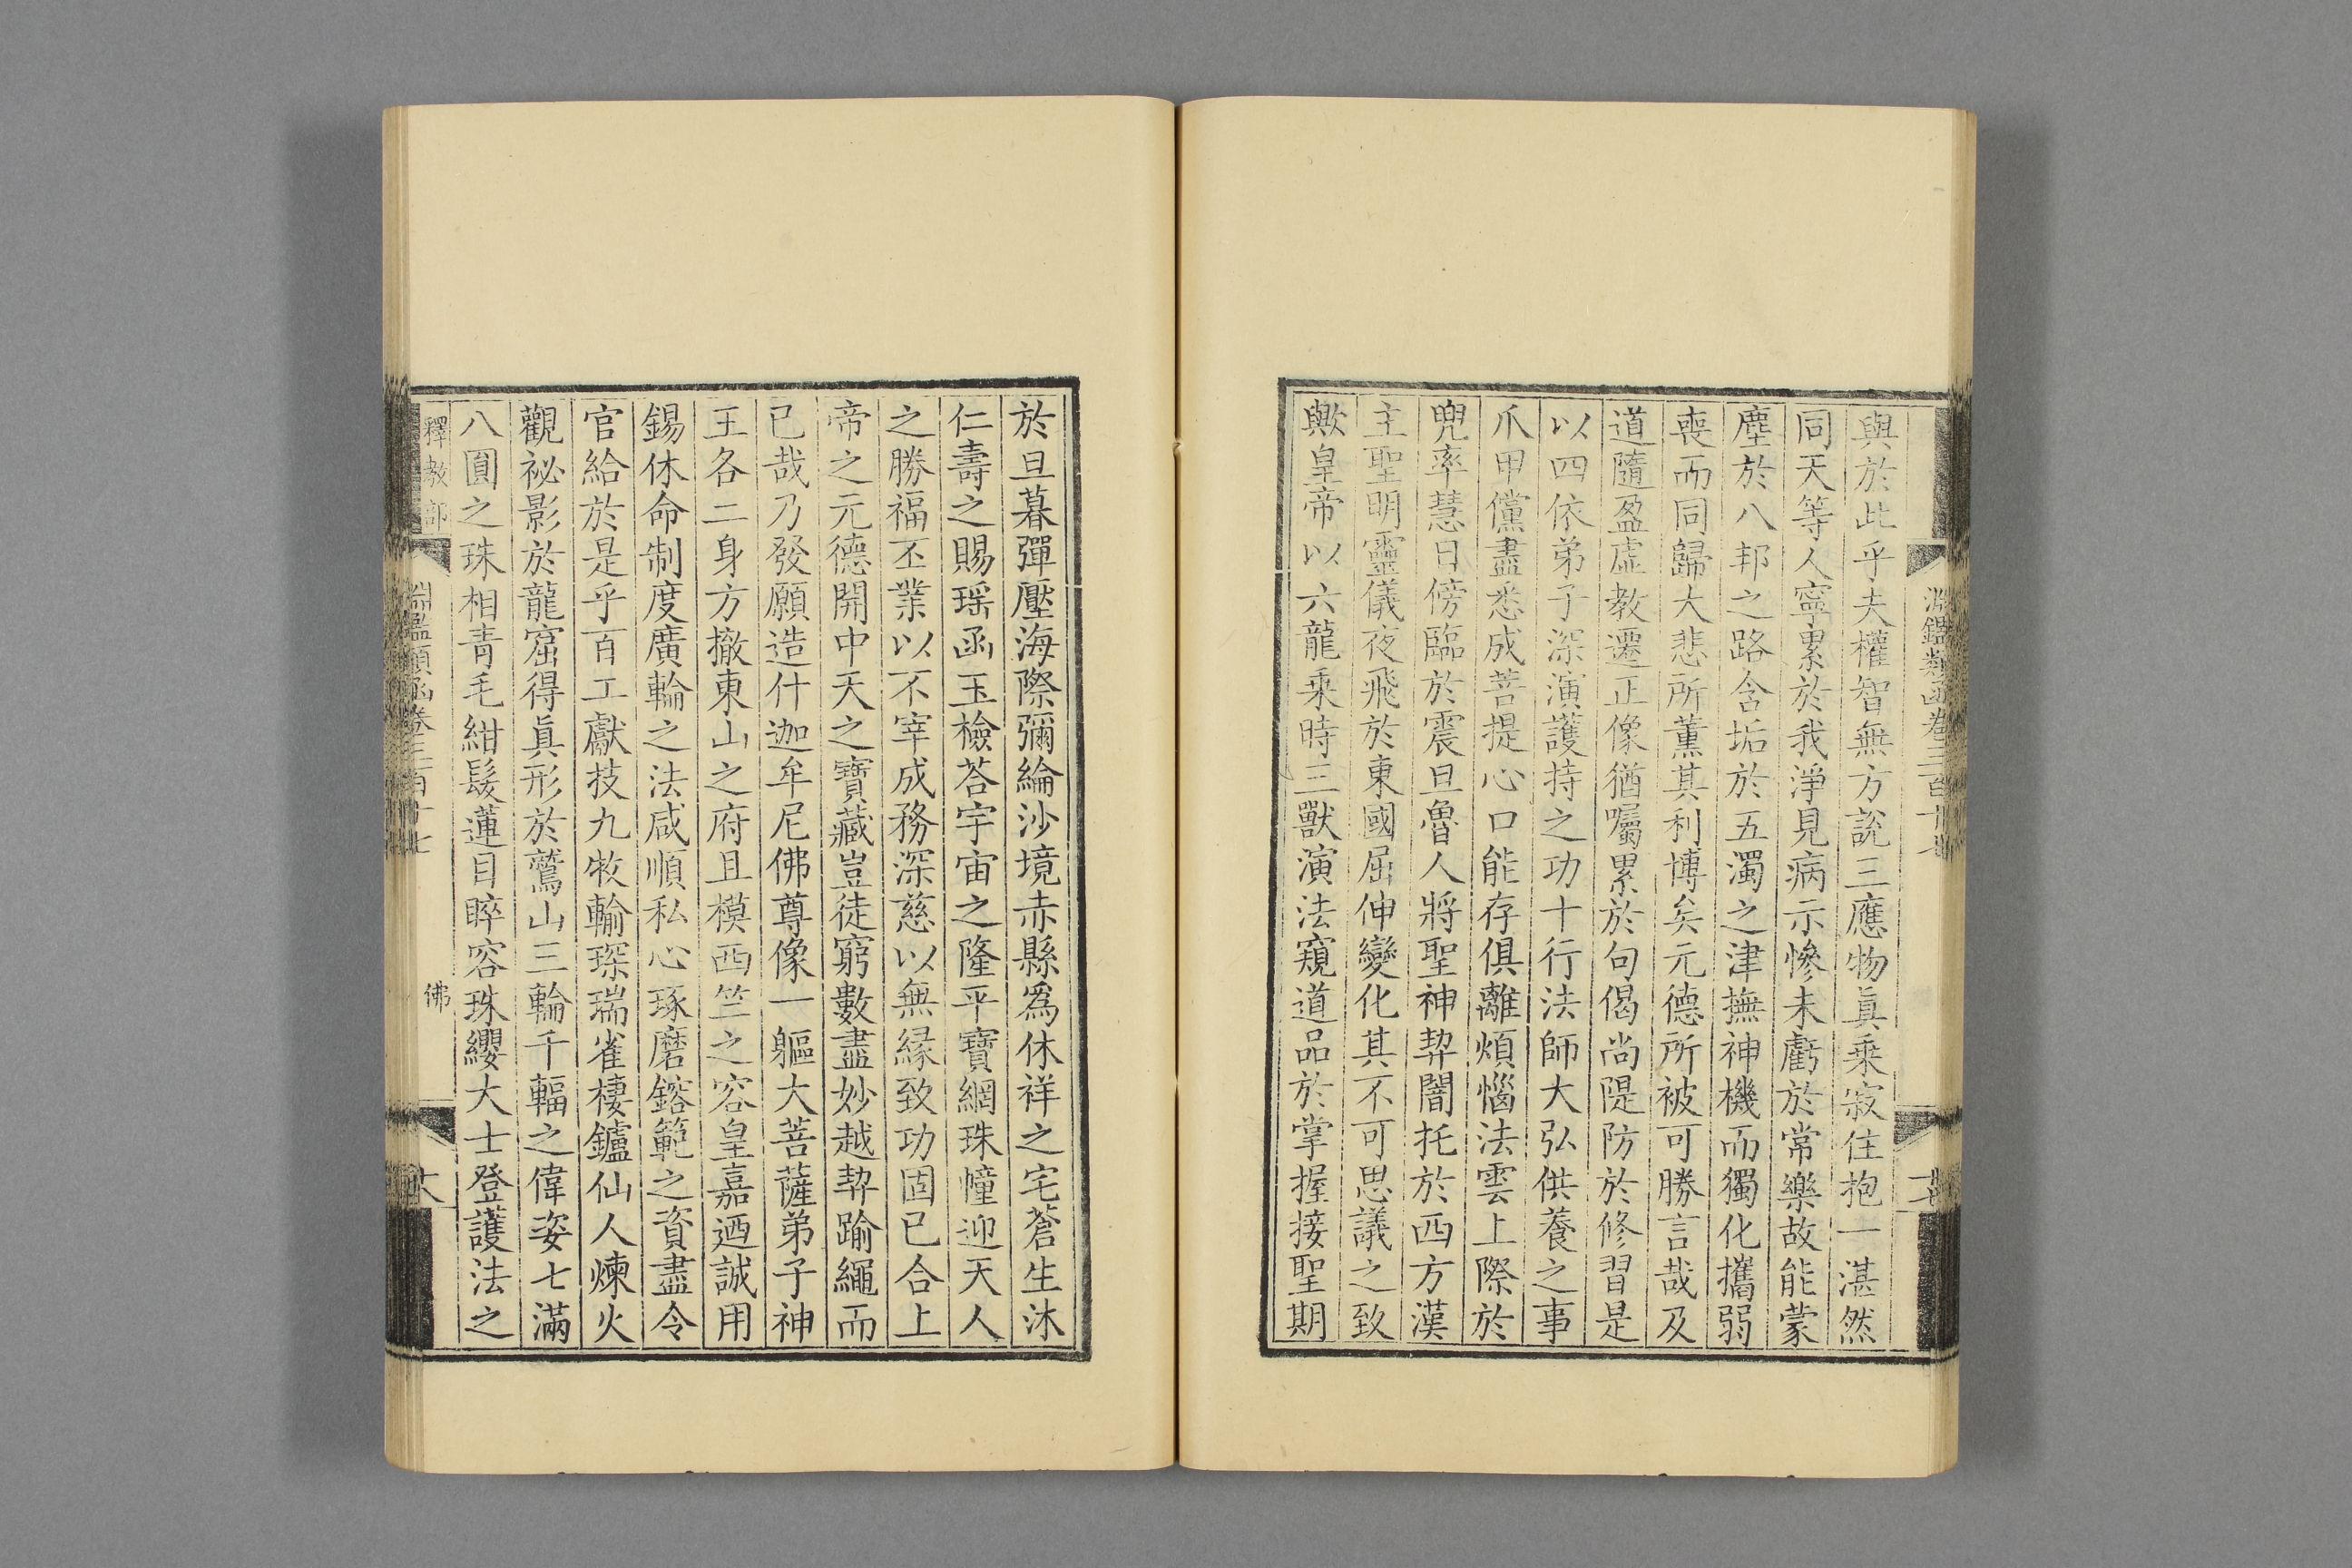 與於此乎夫權智無方說三應物眞乘寂住抱一湛然
同天等人寧累於我淨見病示慘未虧於常樂故能蒙
塵於八邦之路含垢於五濁之津撫神機而獨化攜弱
喪而同歸大悲所薰其利博矣元德所被可勝言哉及
道隨盈虛教遷正像猶囑累於句偈尚隄防於修習是
以四依弟子深演護持之功十行法師大弘供養之事
爪甲儻盡悉成菩提心口能存俱離煩惱法雲上際於
兜率慧日傍臨於震旦魯人將聖神契闇托於西方漢
主聖明靈儀夜飛於東國屈伸變化其不可思議之致
歟皇帝以六龍乘時三獸演法窺道品於掌握接聖期
於旦暮彈壓海際彌綸沙境赤縣爲休祥之宅蒼生沐
仁壽之賜瑤函玉檢荅宇宙之隆平寶網珠幢迎天人
之勝福丕業以不宰成務深慈以無緣致功固已合上
帝之元德開中天之寶藏豈徒窮數盡妙越契踰繩而
已哉乃發願造什迦牟尼佛尊像一軀大菩薩弟子神
王各二身方撤東山之府且模西竺之容皇嘉迺誠用
錫休命制度廣輪之法咸順私心琢磨鎔範之資盡令
官給於是乎百工獻技九牧輸琛瑞雀棲鑪仙人煉火
觀祕影於龍窟得眞形於鷲山三輪千輻之偉姿七滿
八圓之珠相青毛紺髮蓮目睟容珠纓大士登護法之
釋教部 淵鑑類函卷三百十七 佛 十八